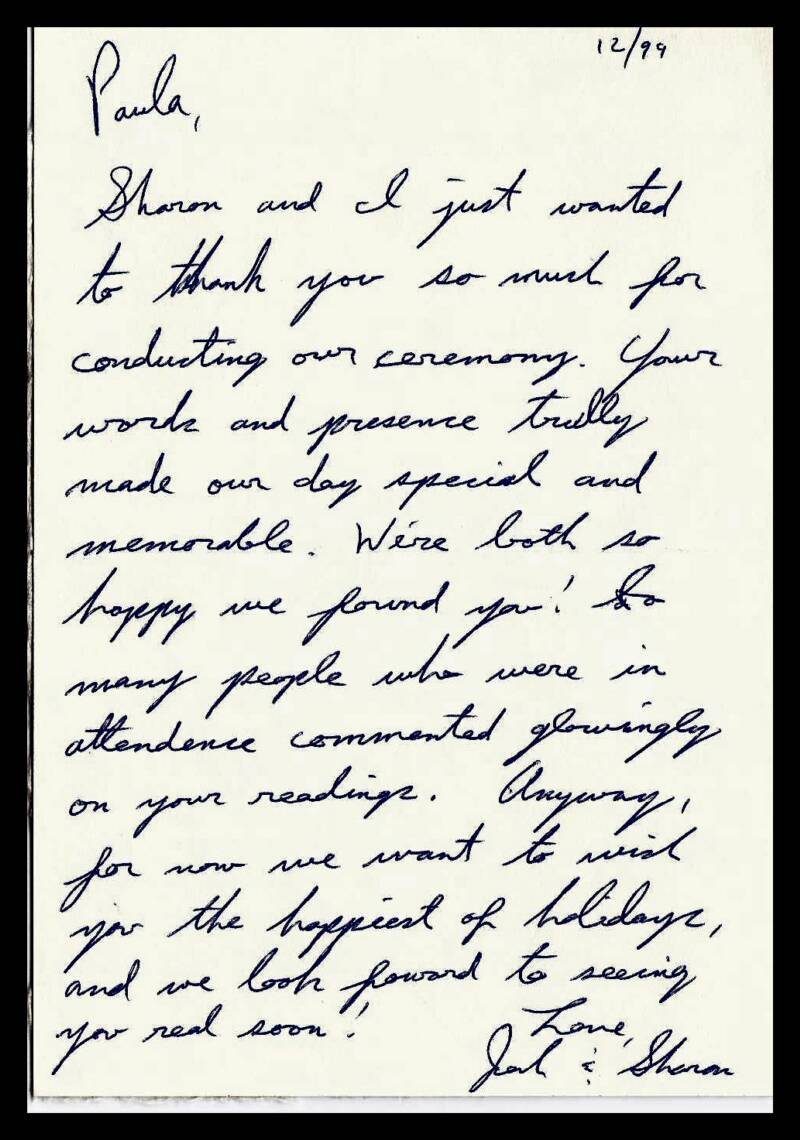 12/99
Paula,
Sharon and I just wanted
to thank you so much for
conducting our ceremony. Your
words and presence trully
made our day special and
memorable. We're both so
happy we found you! So
many people who were in
attendence commented glowingly
on your readings. Anyway,
for now we want to wish
you the happiest of holidays,
and we look foward to seeing
you real soon!
Love,
& Sharon